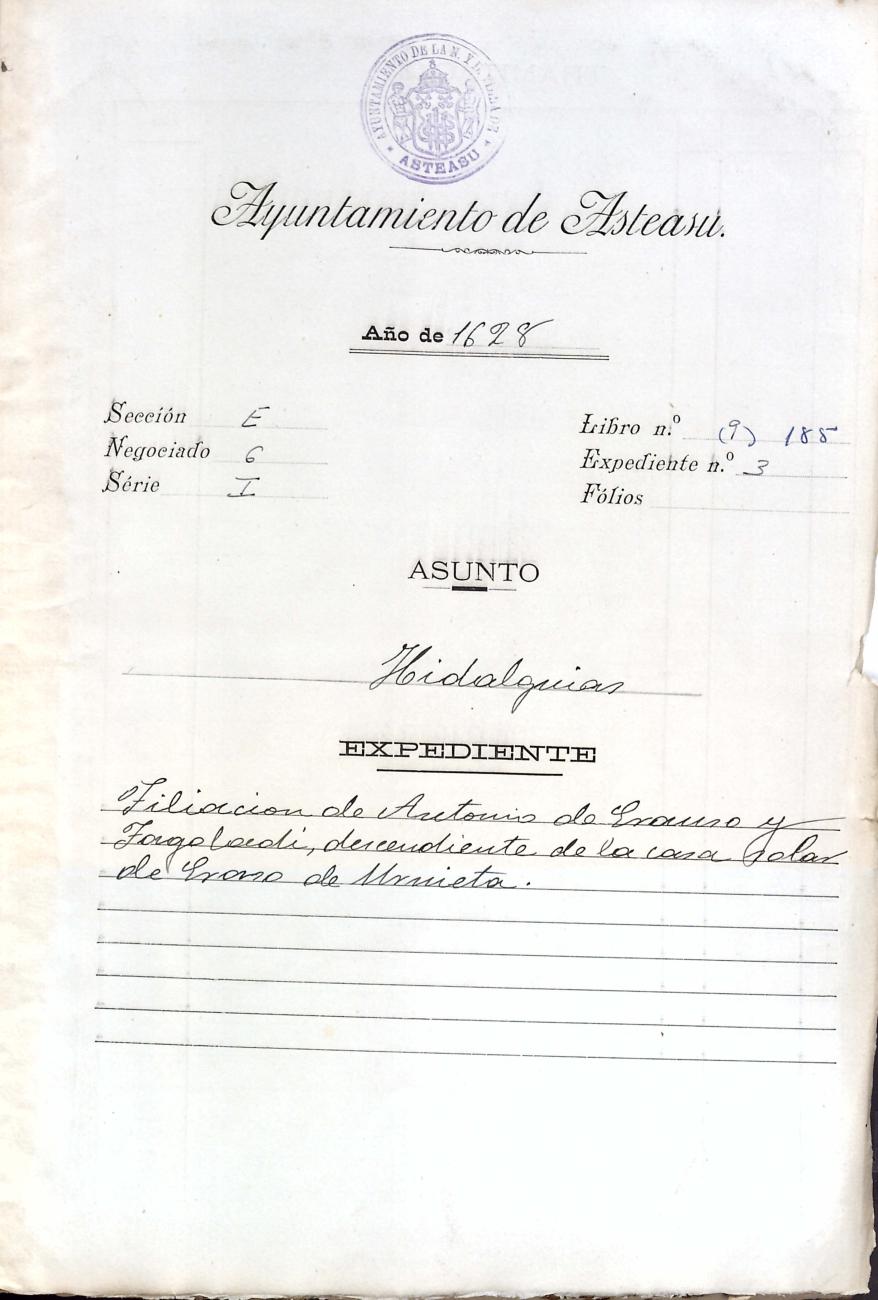 AYUNTAMIENTO DE LA N. Y L. VILLA DE
ASTEASU
Ayuntamiento de Asteasu.
Año de 1628
Sección E
Negociado 6
Série I
Libro n.º (9) 188
Expediente n.º 3
Fólios
ASUNTO
Hidalguias
EXPEDIENTE
Filiacion de Antonio de Erauso y
descendiente de la casa solar
de Eroso de Urnieta.